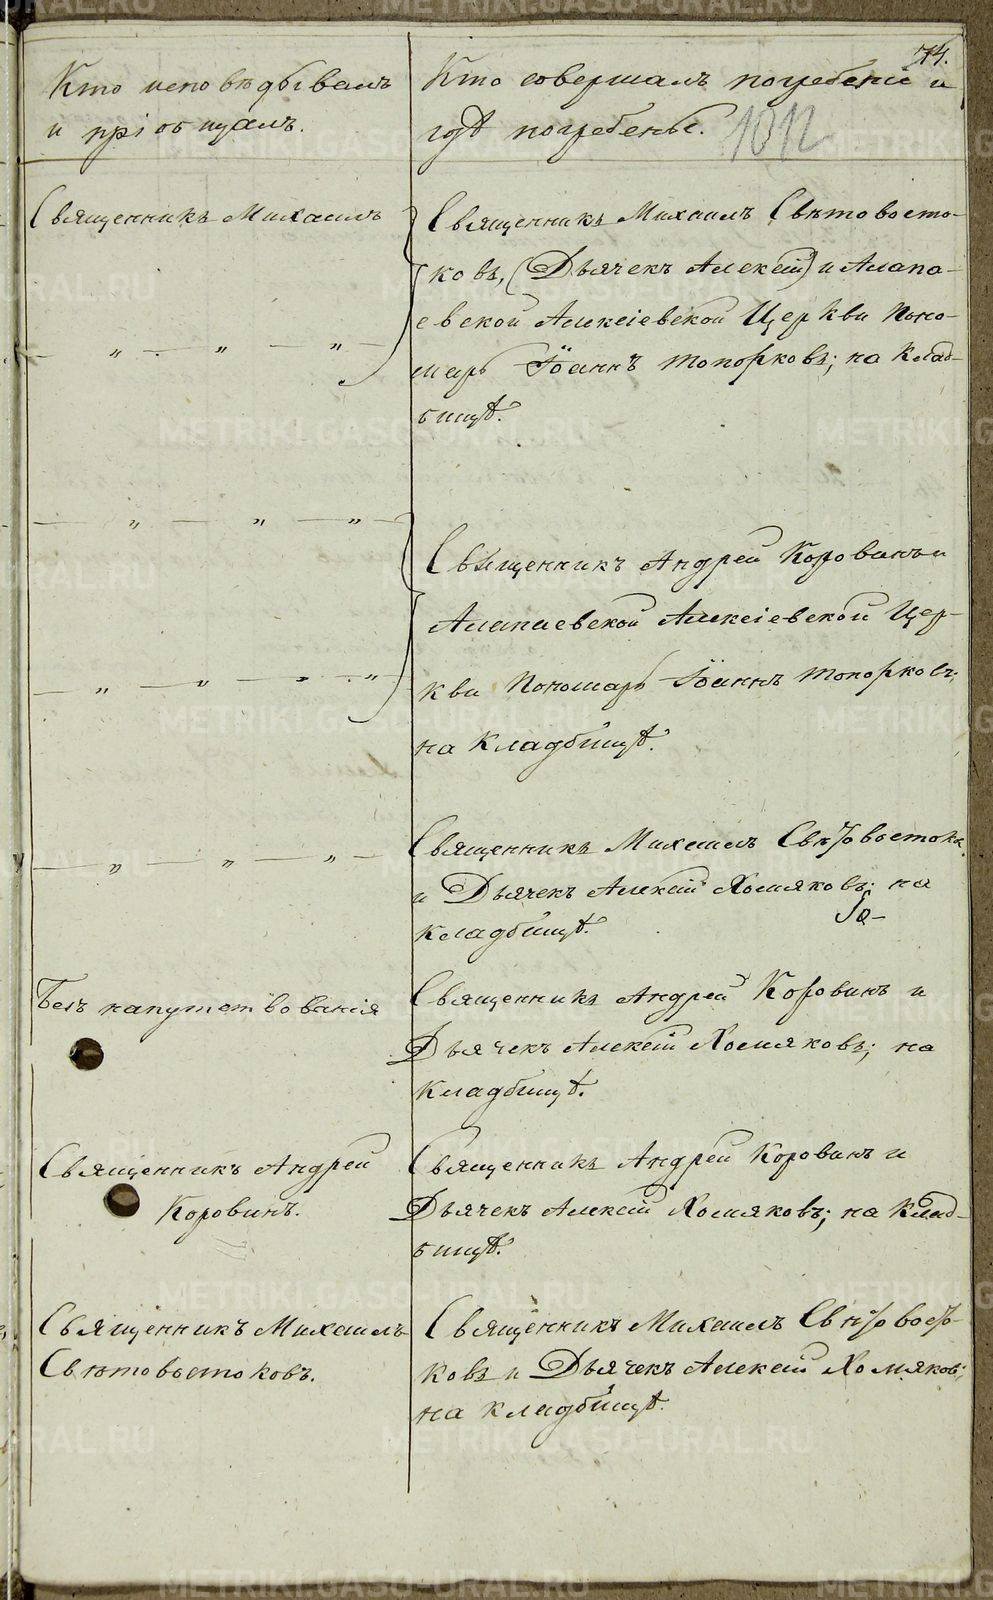 74.
Кто исповѣдывалъ
и пріобщалъ.
Кто совершалъ погребеніе и
гдѣ погребены.
1012
Священникъ Михаилъ
" " "
Священникъ Михаилъ Свѣтовосто-
ковъ, (Дьячекъ Алексѣй) и Алапа-
евской Алексіевской Церкви Поно-
марь Іоаннъ Топорковъ; на Клад-
бищѣ.
" " "
" " " "
Священникъ Андрей Коровинъ и
Алапаевской Алексіевской Цер-
кви Пономарь Іоаннъ Топорковъ;
на Кладбищѣ.
" " "
Священникъ Михаилъ Свѣтовостоковъ
и Дьячекъ Алексѣй Хомяковъ; на
Кладбищѣ.
Безъ напутствованія
Священникъ Андрей Коровинъ и
Дьячекъ Алексѣй Хомяковъ; на
Кладбищѣ.
Священникъ Андрей
Коровинъ.
Священникъ Андрей Коровинъ и
Дьячекъ Алексѣй Хомяковъ; на Клад-
бищѣ.
Священникъ Михаилъ
Свѣтовостоковъ.
Священникъ Михаилъ Свѣтовосто-
ковъ и Дьячекъ Алексѣй Хомяковъ;
на Кладбищѣ.
METRIKI.GASO-URAL.RU